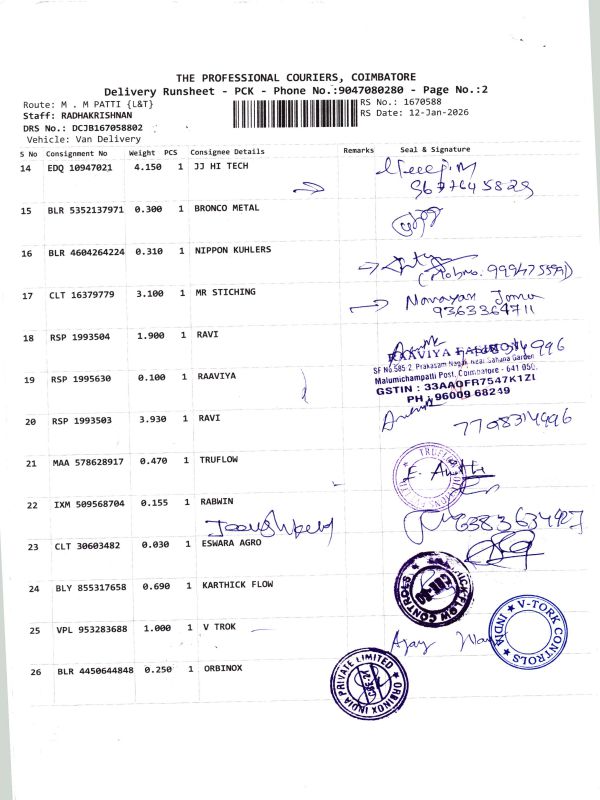 THE PROFESSIONAL COURIERS, COIMBATORE
Delivery Runsheet - PCK - Phone No.:9047080280 - Page No.:2
Route: M . M PATTI {L&T}
RS No.: 1670588
Staff: RADHAKRISHNAN
RS Date: 12-Jan-2026
DRS No.: DCJB167058802
Vehicle: Van Delivery
S No Consignment No Weight PCS Consignee Details Remarks Seal & Signature
14 EDQ 10947021 4.150 1 JJ HI TECH
9677645829
15 BLR 5352137971 0.300 1 BRONCO METAL
16 BLR 4604264224 0.310 1 NIPPON KUHLERS
17 CLT 16379779 3.100 1 MR STICHING
9363364711
18 RSP 1993504 1.900 1 RAVI
SF No.585 2, Prakasam Nagar, Near Sahana Garden
19 RSP 1995630 0.100 1 RAAVIYA
Malumichampatti Post, Coimbatore - 641 050.
GSTIN : 33AAOFR7547K1ZI
PH : 96009 68249
20 RSP 1993503 3.930 1 RAVI
7708314996
21 MAA 578628917 0.470 1 TRUFLOW
22 IXM 509568704 0.155 1 RABWIN
23 CLT 30603482 0.030 1 ESWARA AGRO
24 BLY 855317658 0.690 1 KARTHICK FLOW
25 VPL 953283688 1.000 1 V TROK
Ajay
V-TORK CONTROLS INDIA
26 BLR 4450644848 0.250 1 ORBINOX
ORBINOX INDIA PRIVATE LIMITED